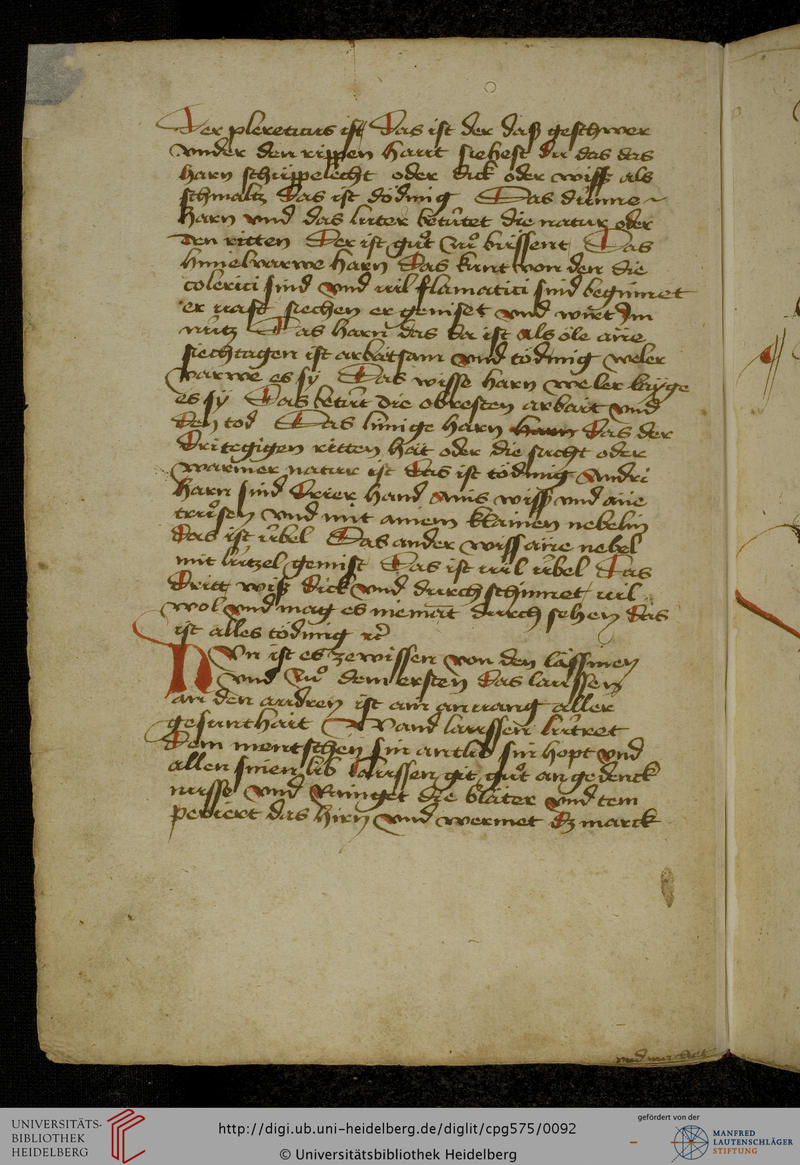 Der plereticus ist Das ist der das geschwer
vnder den rippen haut siehest du das das
harn schuppelecht oder dick oder wiss als
schmaltz Das ist dödmig Das dünne
harn vnd das luter betütet die natur oder
den ritten Der ist gůt zů bůssent Das
himelvarwe harn Das kunt von den die
colerici sind vnd uil flamatici sind beginnet
er vast siechen er geniset vnd würt Im
nütz Das harn das da ist als öle ane
siechtagen ist arbaitsam vnd tödmig weler
varwe es sÿ Das wisse harn weler layge
es sÿ Das betüt die obresten arbait vnd
den tod Das harn das der
Dritegigen ritten hät oder die sucht oder
warmer natur ist Das ist tödmig Andri
harn sind drier hand ains wiss vnd ane
trůsen vnd mit ainem klainen nebelin
Das ist übel Das ander wiss ane nebel
mit lützel gemist Das ist uil übel Das
dritt wiss dick vnd durch schinnet uil
wol vnd mag es niemāt durch sehen das
ist alles tödmig
Nvn ist es ze wissen von den lässinen
vnd zů dem ersten das laussen
an den andren ist ain anuang aller
gesunthait Wand laussen lütret
dem mentschen sin antlit sin hopt vnd
allen sinen lib laussen git gůt angedenck
nusse vnd rainget die blater vnd tem
periert das hirn vnd wermet dz marck
UNIVERSITÄTS-
BIBLIOTHEK
HEIDELBERG
http://digi.ub.uni-heidelberg.de/diglit/cpg575/0092
© Universitätsbibliothek Heidelberg
gefördert von der
MANFRED
LAUTENSCHLÄGER
STIFTUNG